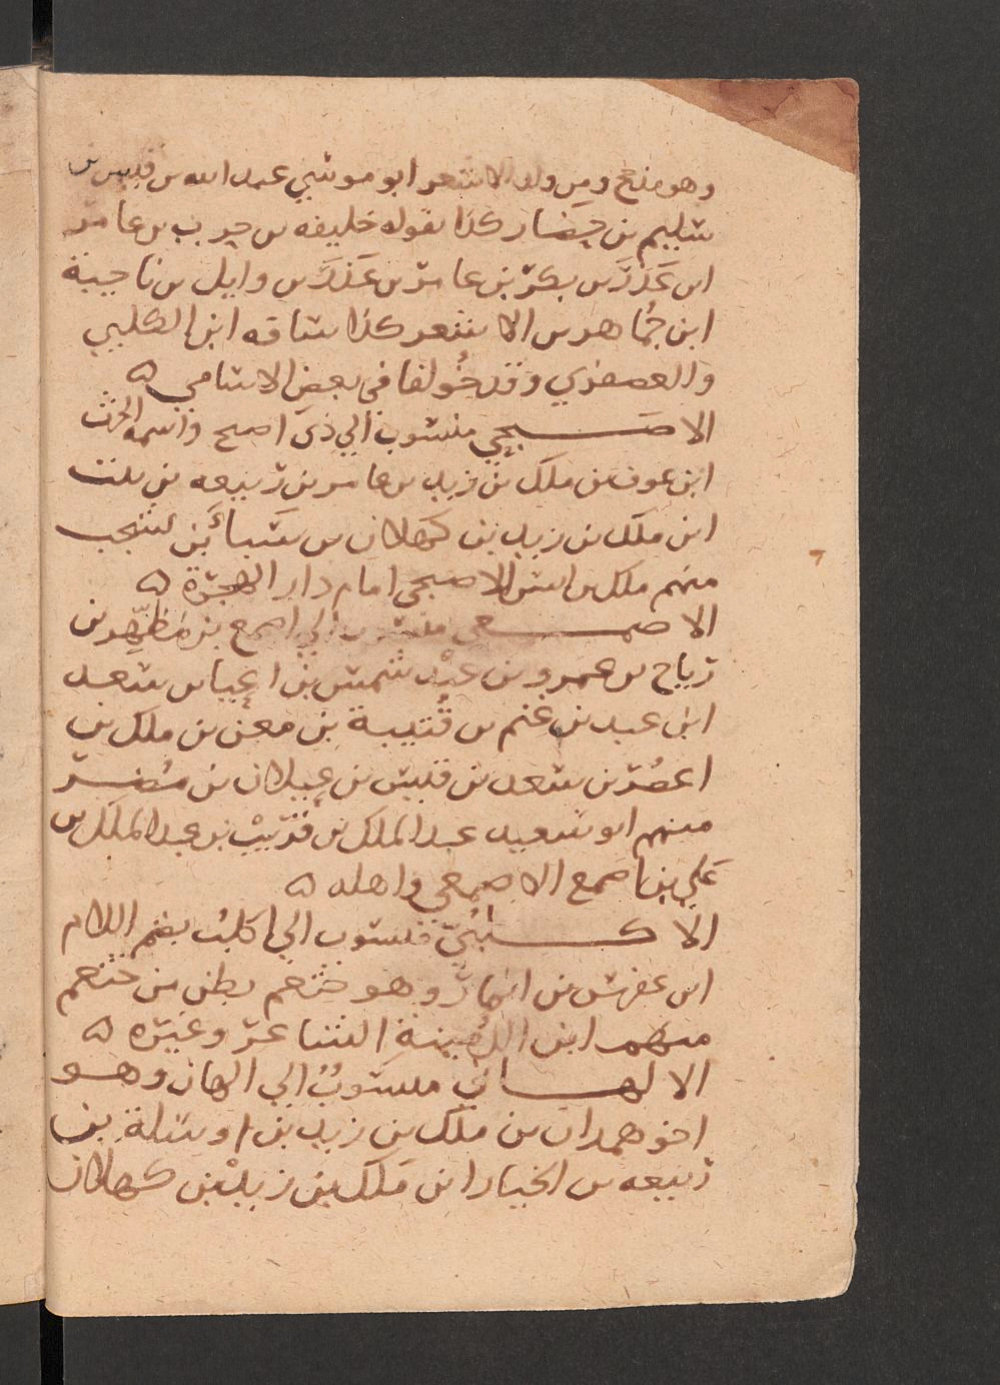 وهو مذحج ومن ولد الاشعر ابو موسي عبد الله بن قيس بن
سليم بن حضار كذا يقوله خليفه بن حرب بن عامر
ابن عَنَزَ بن بكر بن عامر بن عَذَرَ بن وايل بن ناجية
ابن جُماهر بن الاشعر كذا ساقه ابن الكلبي
والعصفري وقد خُولفا في بعض الاسامي ه
الاصبحي منسوب الي ذي اصبح واسمه الحرث
ابن عوف بن ملك بن زيد بن عامر بن ربيعه بن نبت
ابن ملك بن زيد بن كهلان بن سبأ بن يشجب
منهم ملك بن انس الاصبحي امام دار الهجرة ه
الاصمعي منسوب الي اصمع بن مُظَهِّر بن
رياح بن عمرو بن عبْد شمس بن اعيا بن سعد
ابن عبد بن غنم بن قُتيبة بن معن بن ملك بن
اعصُر بن سعد بن قيس بن عيلان بن مُضر
منهم ابو سعيد عبد الملك بن قُرَيبْ بن عبد الملك بن
عَلي بن اصمع الاصمعي واهله ه
الاكلبُيّ منسوب الي اكلبُ بضم اللام
ابن عفرس بن انمار وهو خثعم بطن من خثعم
منهم ابن الدُمينةِ الشاعر وغيره ه
الالهاني منسوبٌ الي الهان وهو
اخو همدان بن ملك بن زيد بن اوسلة بن
ربيعه بن الخيار ابن مَلك بن زيدْ بن كهلان